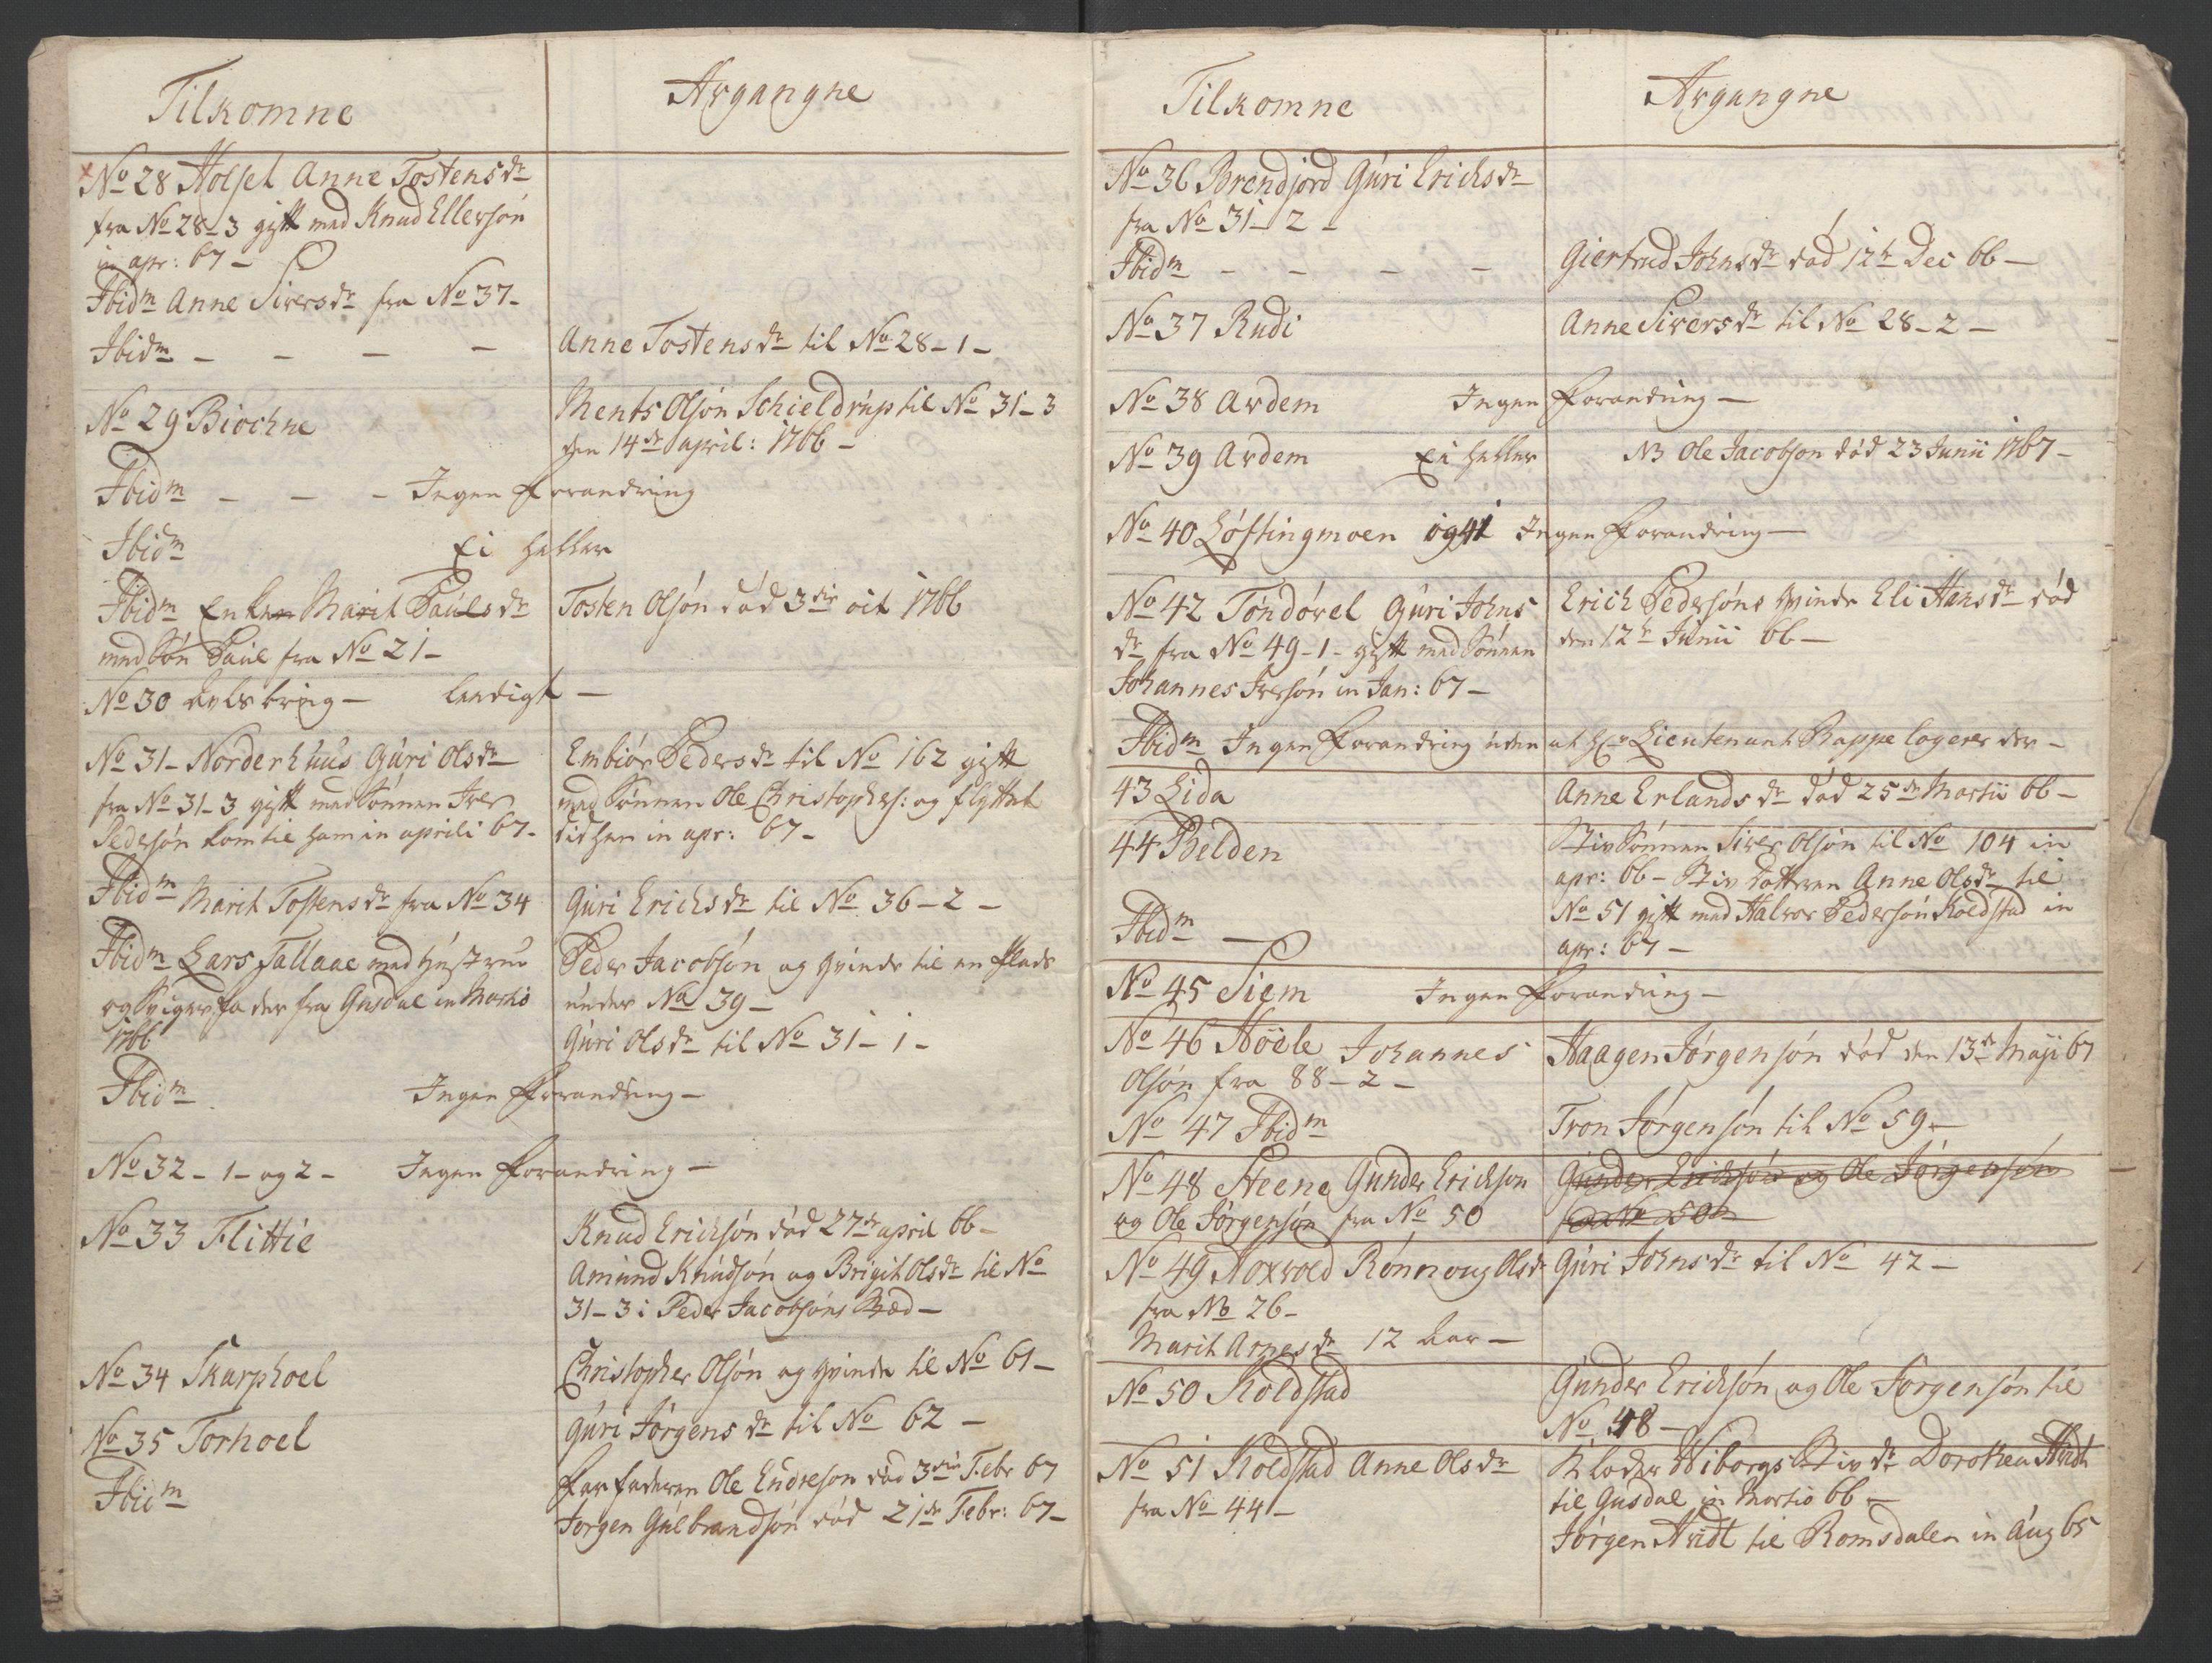 Tilkomne
Avgangne
No 28 Holset Anne Tostensdr
fra No 28-3 gift med Knud Ellersøn
in apr: 67 -
Ibidm Anne Siversdr fra No 37-
Ibidm - - - -
Anne Tostensdr til No 28-1-
No 29 Biochne
Ments Olsøn Schieldrup til No 31-3
den 14de April: 1766 -
Ibidm - - - Ingen Forandring
Ibidm Ei heller
Ibidm Enken Marit Paulsdr
med Søn Paul fra No 21-
Tosten Olsøn død 3die oct 1766
No 30 - Leedigt -
No 31- Norderhuus Guri Olsdr
fra No 31-3 gift med Sønnen Iver
Pedersøn kom til ham in aprili 67-
Embiør Pedersdr til No 162 gift
med Sønnen Ole Christophers: og flyttet
did hen in apr: 67-
Ibidm Marit Tostensdr fra No 34
Guri Erichsdr til No 36-2-
Ibidm Lars Tallaae med Hustrue
og Svigerfader fra Gusdal in Martio
1766
Peder Jacobsøn og Qvinde til en Plads
under No 39-
Guri Olsdr til No 31-1-
Ibidm Ingen Forandring-
No 32-1- og 2- Ingen Forandring-
No 33 Flittie
Knud Erichsøn død 27de april 66-
Amund Knudsøn og Brigit Olsdr til No
31-3 i Peder Jacobsøns Stæd-
No 34 Skarphoel
Christopher Olsøn og Qvinde til No 61-
No 35 Torhoel
Guri Jørgensdr til No 62 -
Ibidm
Farfaderen Ole Endresøn død 3die Febr 67
Jørgen Gulbrandsøn død 21de Febr: 67-
Tilkomne
Avgangne
No 36 Brendjord Guri Erichsdr
fra No 31-2-
Ibidm - - - -
Giertrud Johnsdr død 12te Dec 66-
No 37 Rudi
Anne Siversdr til No 28-2-
No 38 Ardem Ingen Forandring-
No 39 Ardem Ei heller NB Ole Jacobson død 23 Junii 1767-
No 40 Løftingmoen og 41 Ingen Forandring-
No 42 Tøndøvel Guri Johns
dr fra No 49-1- gift med Sønnen
Johannes Iversøn in Jan: 67-
Erich Pedersøns Qvinde Eli Hansdr død
den 12te Junii 66-
Ibidm Ingen Forandring uden at Hr Lieutenant Rappe logerer der-
43 Lida
Anne Erlandsdr død 25de Martii 66-
44 Belden
Stivsønnen Siver Olsøn til No 104 in
apr: 66- Stivdatteren Anne Olsdr til
No 51 gift med Halvor Pedersøn Koldstad in
apr: 67-
Ibidm -
No 45 Siem Ingen Forandring-
No 46 Høele Johannes
Olsøn fra 88-2-
Haagen Jørgensøn død den 13de Maji 67
No 47 Ibidm
Tron Jørgensøn til No 59-
No 48 Steene Gunder Erichson
og Ole Jørgensøn fra No 50
Gunder Erichsøn og Ole Jørgensøn
fra No 50
No 49 Hoxvold Rønnoug Olsdr
fra No 26-
Marit Arnesdr 12 Aar-
Guri Johnsdr til No 42-
No 50 Koldstad
Gunder Erichsøn og Ole Jørgensøn til
No 48-
No 51 Koldstad Anne Olsdr
fra No 44-
Klocker Wiborgs Stivdr Dorothea Hvidt
til Gusdal in Martio 66-
Jørgen Hvidt til Romsdalen in Aug 65